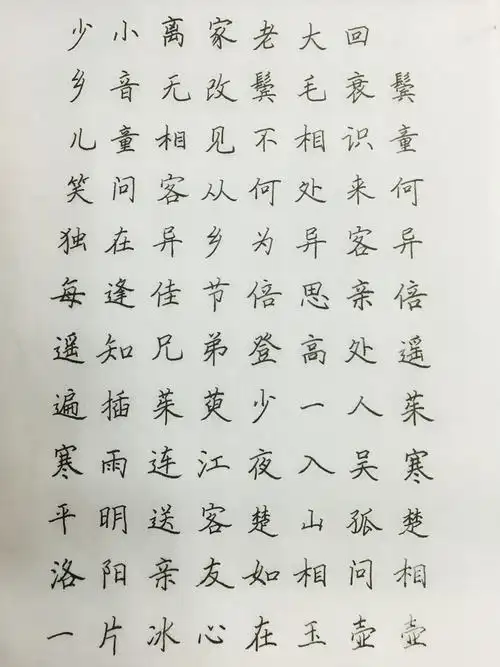 少小离家老大回
乡音无改鬓毛衰鬓
儿童相见不相识童
笑问客从何处来何
独在异乡为异客异
每逢佳节倍思亲倍
遥知兄弟登高处遥
遍插茱萸少一人茱
寒雨连江夜入吴寒
平明送客楚山孤楚
洛阳亲友如相问相
一片冰心在玉壶壶